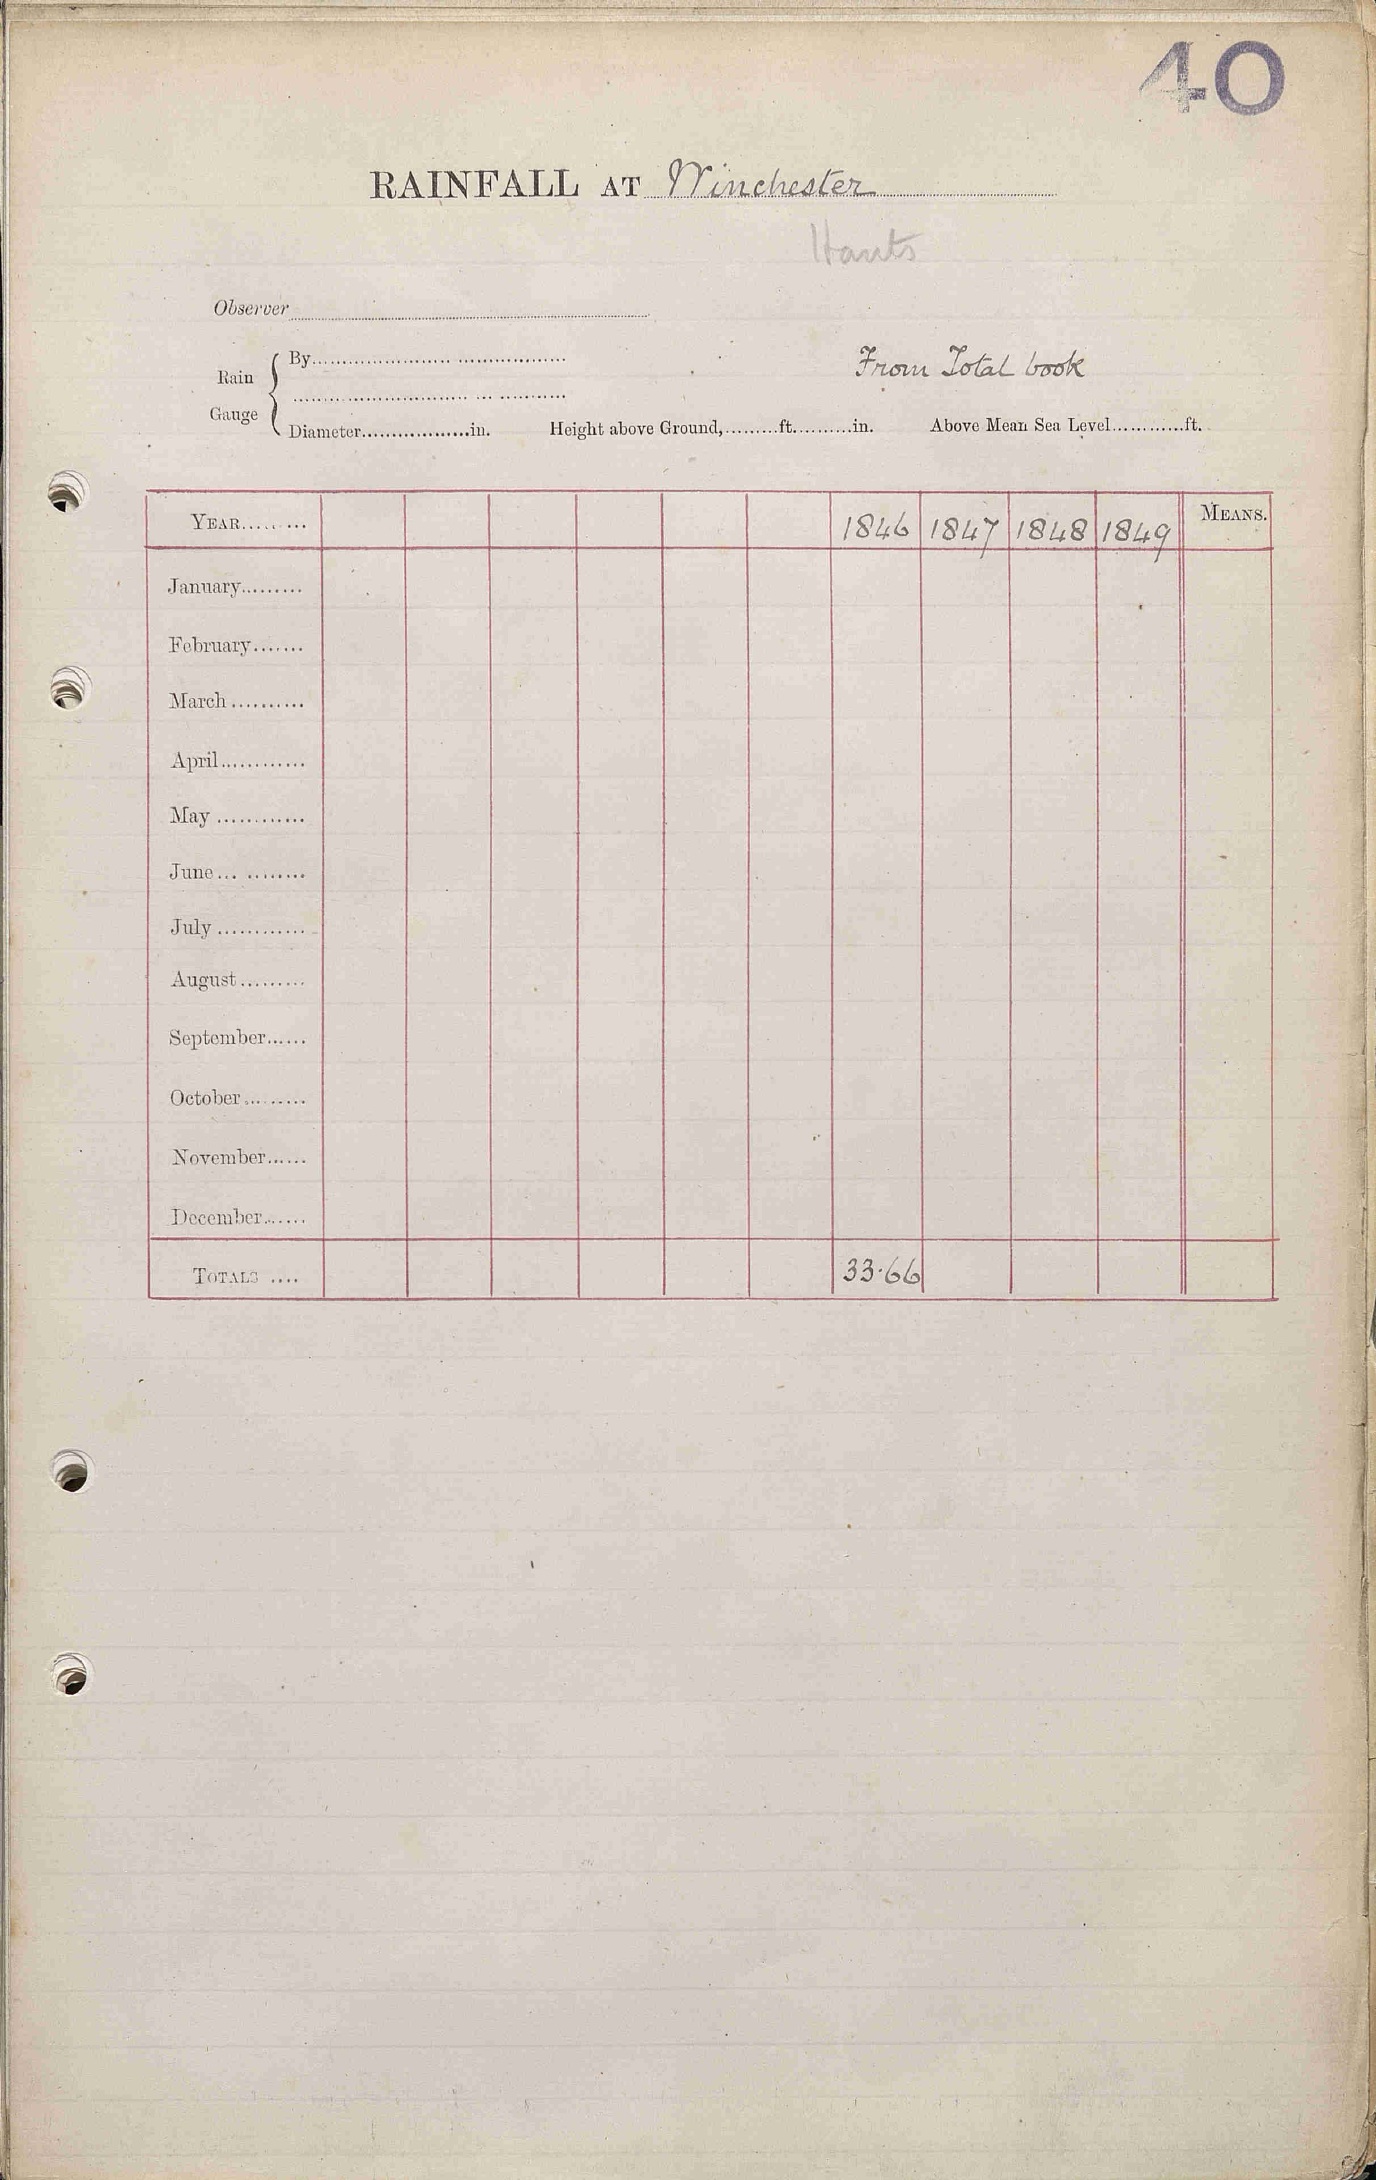 40
RAINFALL AT Winchester
Hants
Observer
Rain Gauge { By
From Total book
Diameter..................in. Height above Ground,.........ft..........in. Above Mean Sea Level............ft.
YEAR......... 1846 1847 1848 1849 MEANS.
January.........
February.......
March..........
April............
May............
June...........
July............
August.........
September......
October.........
November......
December.......
TOTALS.... 33·66